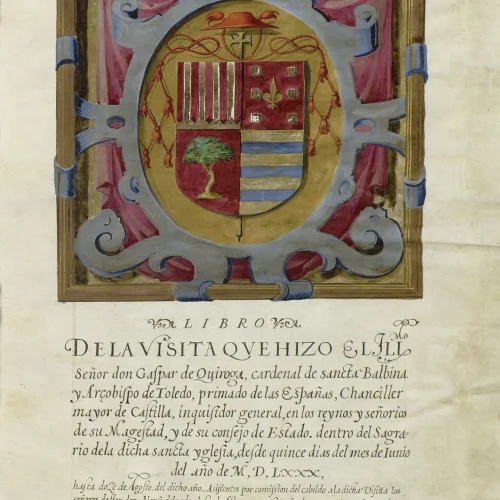 LIBRO
DE LA VISITA QVE HIZO EL ILLᴹᵒ
Señor don Gaspar de Quiroga, cardenal de sancta Balbina
y Arçobispo de Toledo, primado de las Españas, Chanciller
mayor de Castilla, inquisidor general, en los reynos y señorios
de su Magestad, y de su consejo de Estado. dentro del Sagra-
rio dela dicha sancta yglesia, desde quince dias del mes de Iunio
del año de M, D, LXXX,
hasta doze de Agosto, del dicho año. Asistentes por comision del cabildo ala dicha Visita los
señores